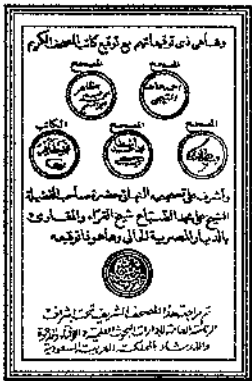 وها هى ذى توقيعاتهم مع توقيع كاتب المصحف الكريم
المصحح
المصحح
المصحح
المصحح
الكاتب
وأشرف على تصحيحه النهائى حضرة صاحب الفضيلة
الشيخ على محمد الضباع شيخ القراء والمقارئ
بالديار المصرية الحالى وها هو ذا توقيعه
تم مراجعة هذا المصحف الشريف تحت إشراف
الرئاسة العامة لإدارات البحوث العلمية والإفتاء والدعوة
والإرشاد بالمملكة العربية السعودية